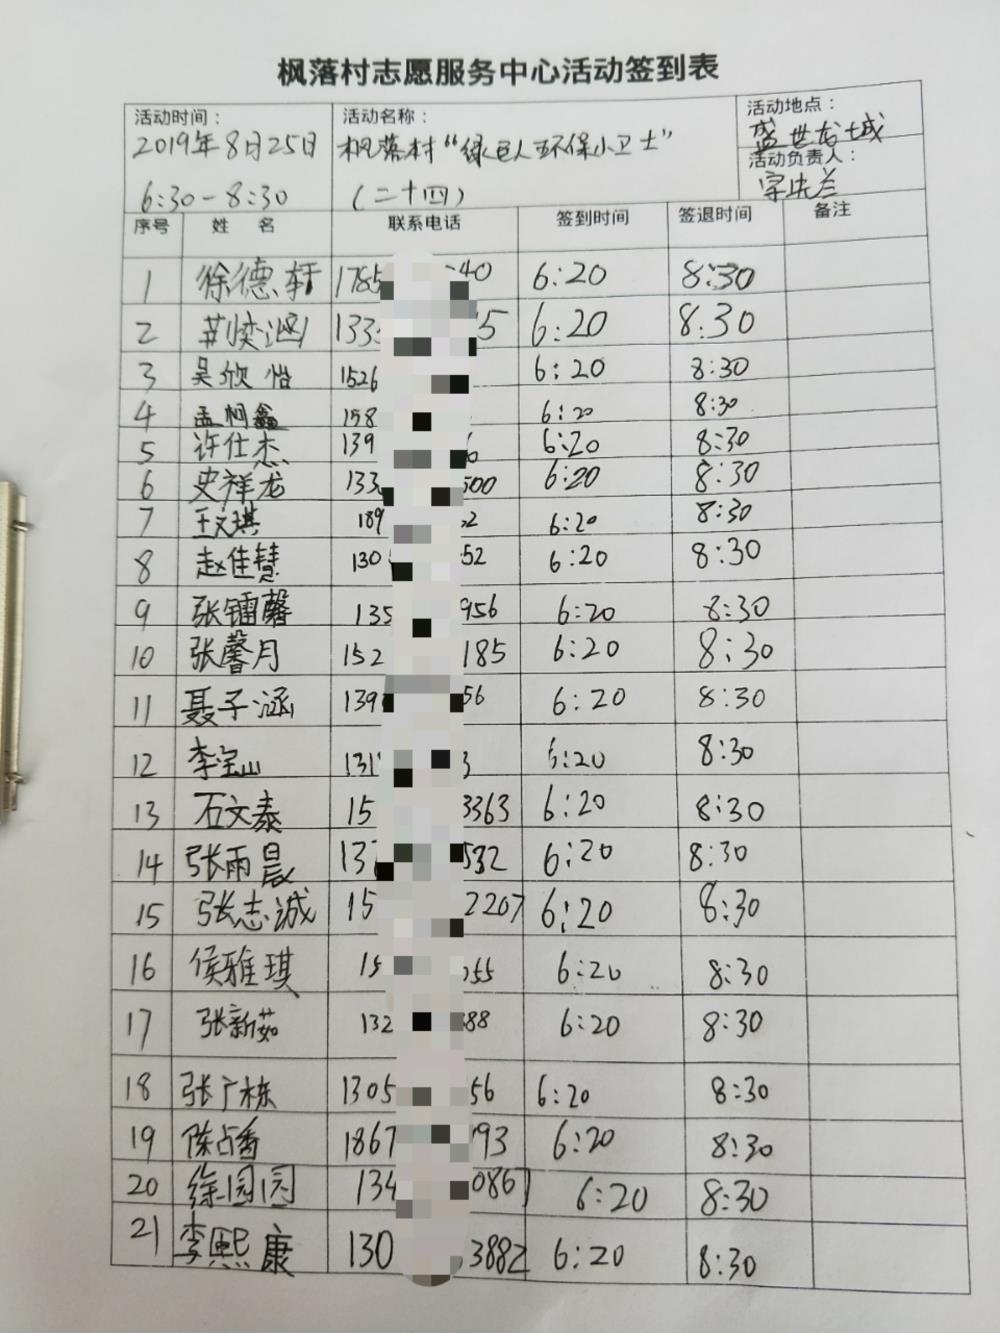 枫落村志愿服务中心活动签到表
活动时间： 活动名称： 活动地点：
2019年8月25日 枫落村“绿巨人环保小卫士” 盛世龙城
活动负责人：
6:30-8:30 （二十四）
序号 姓 名 联系电话 签到时间 签退时间 备注
1 徐德轩 1785 40 6:20 8:30
2 133 5 6:20 8:30
3 吴欣怡 1526 6:20 8:30
4 孟柯鑫 158 6:20 8:30
5 许仕杰 139 6 6:20 8:30
6 史祥龙 133 500 6:20 8:30
7 王文琪 189 2 6:20 8:30
8 赵佳慧 130 52 6:20 8:30
9 张镭馨 135 956 6:20 8:30
10 张馨月 152 185 6:20 8:30
11 聂子涵 139 56 6:20 8:30
12 李宝山 131 3 6:20 8:30
13 石文泰 15 3363 6:20 8:30
14 张雨晨 137 532 6:20 8:30
15 张志诚 15 2207 6:20 8:30
16 侯雅琪 15 055 6:20 8:30
17 张新茹 132 88 6:20 8:30
18 张广栋 1305 56 6:20 8:30
19 陈占香 1867 93 6:20 8:30
20 徐园园 134 086 6:20 8:30
21 李熙康 130 3882 6:20 8:30